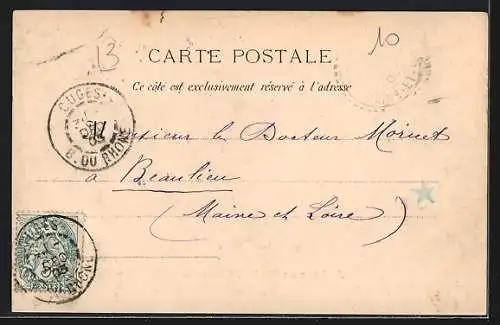 13
10
CARTE POSTALE
Ce côté est exclusivement réservé à l'adresse
CUGES
B. DU RHONE
Monsieur le Docteur Mornet
à Beaulieu
(Maine et Loire)